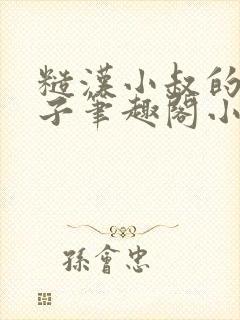 糙漢小叔的
子筆趣閣小
孫會忠